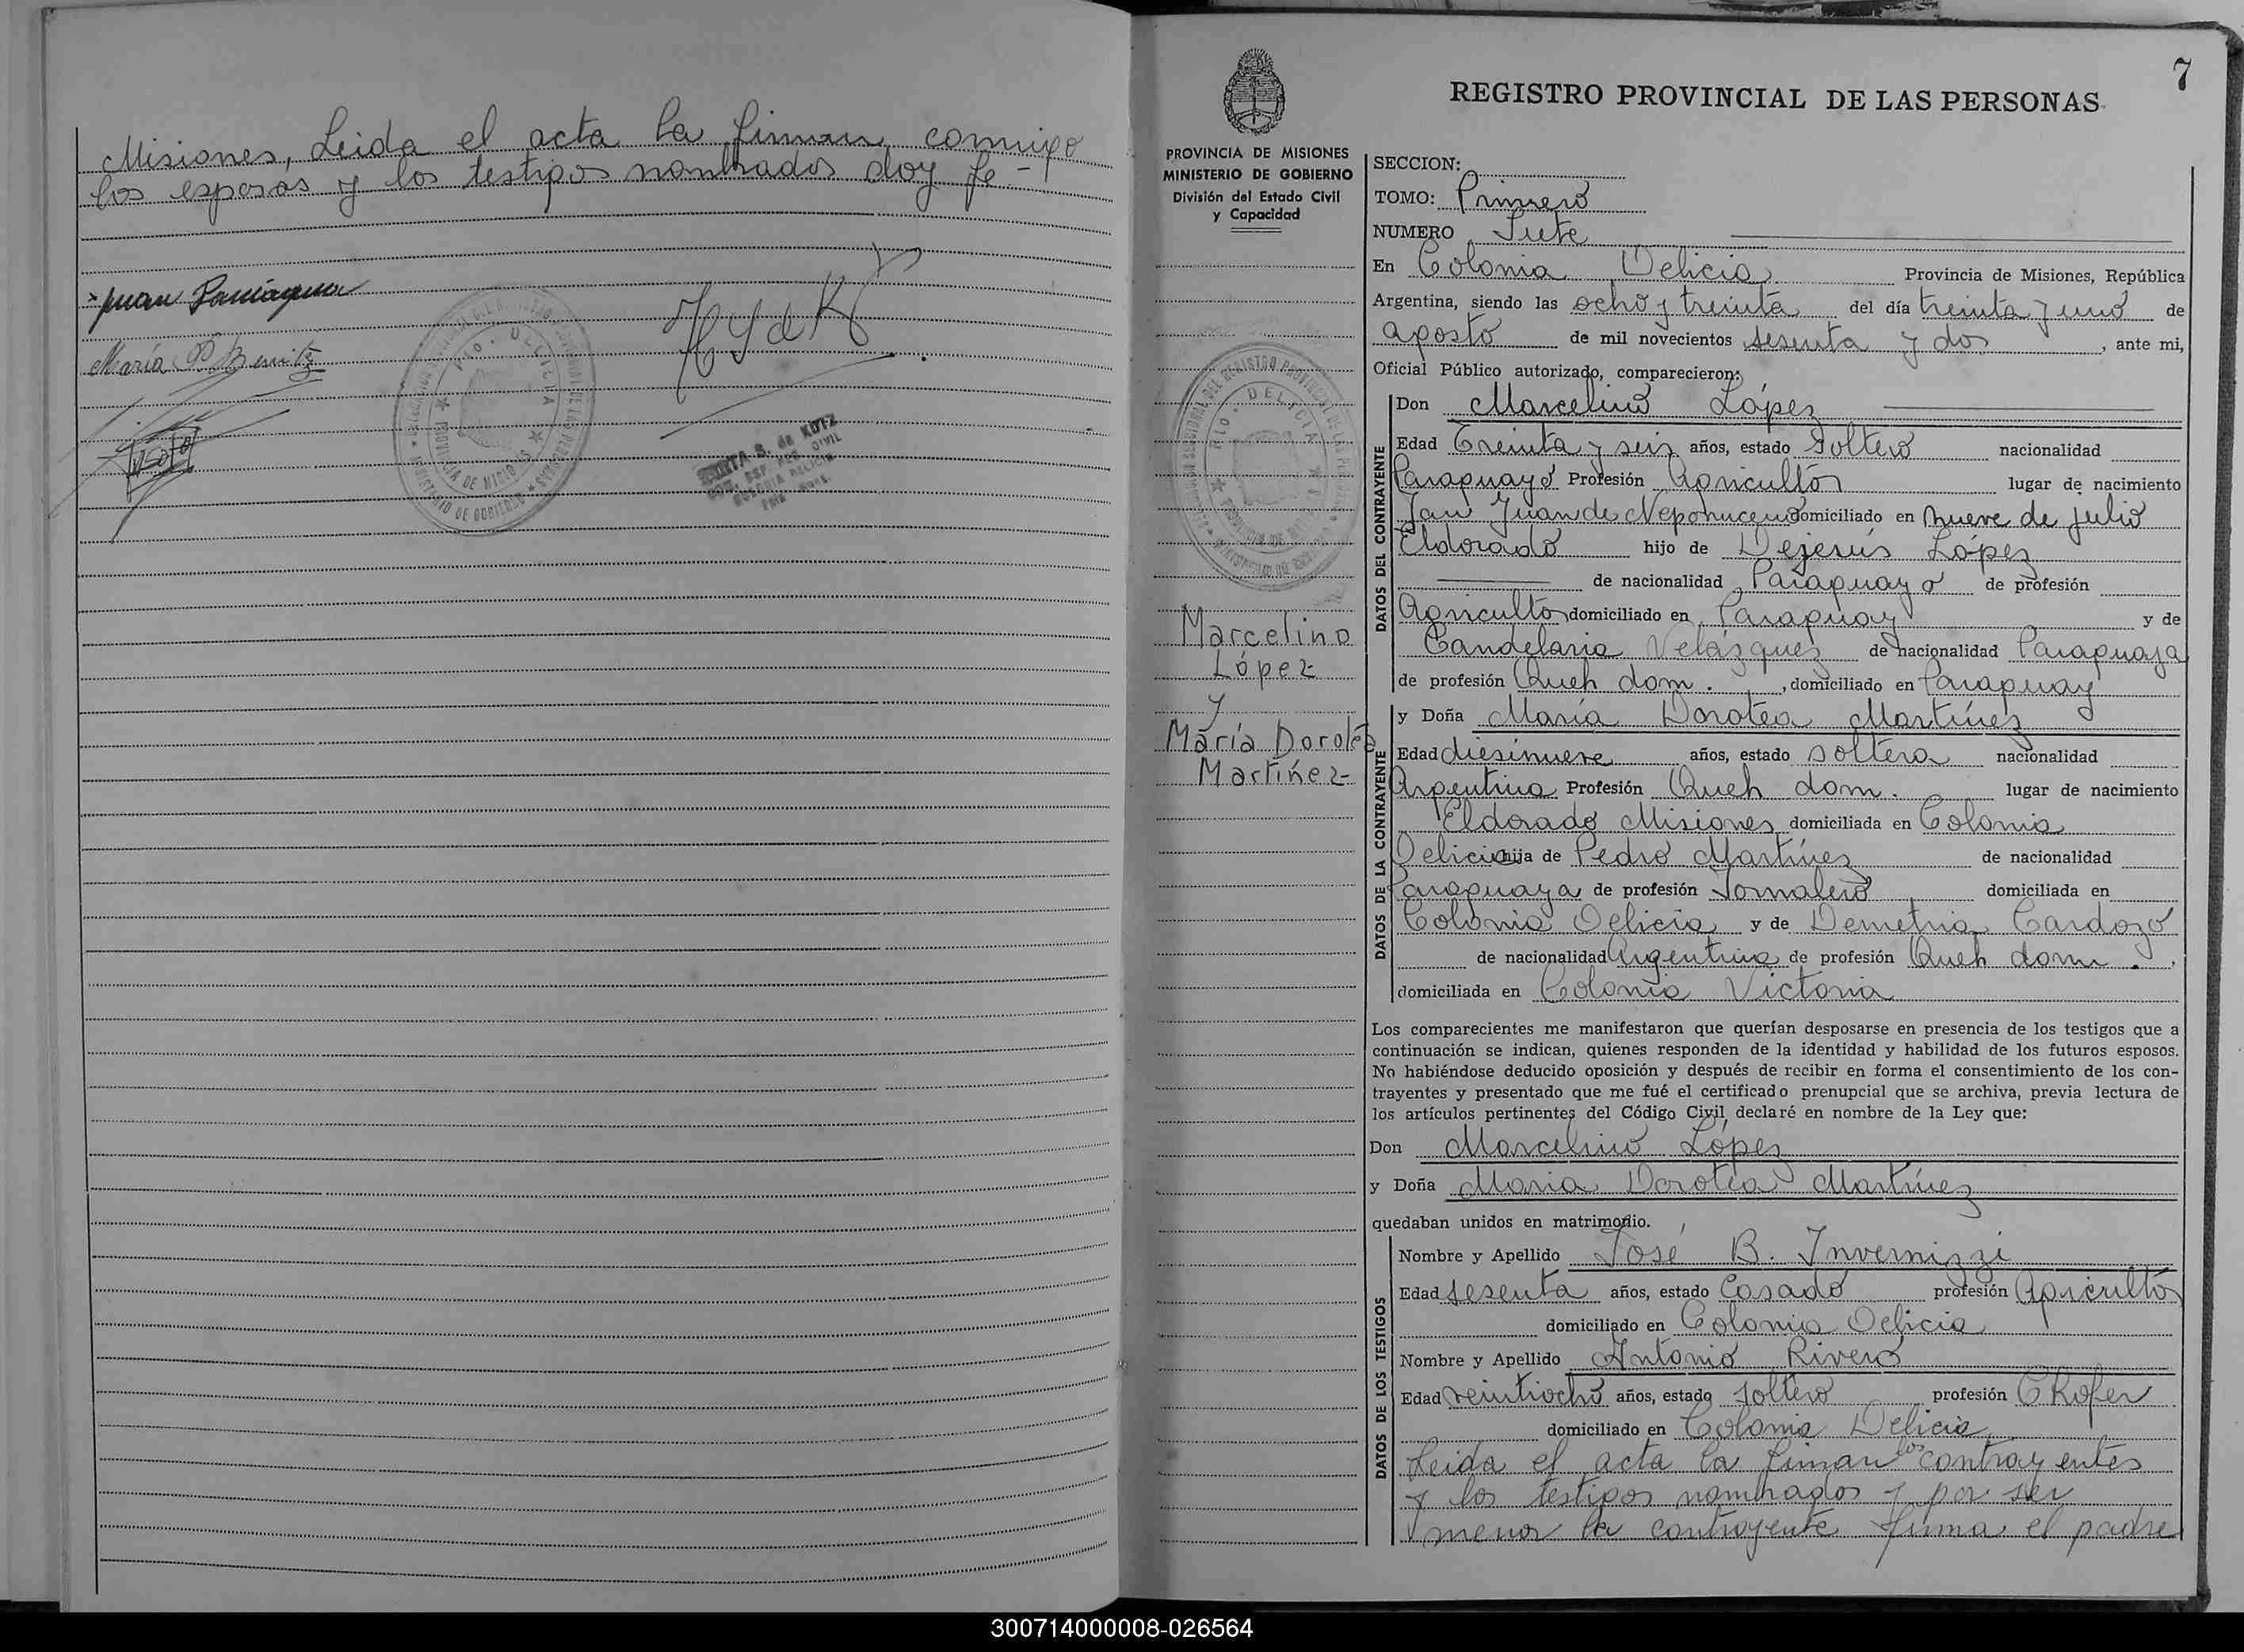 Misiones, Leida el acta la firman conmigo
los esposos y los testigos nombrados doy fe -
Juan Samaniego
María P. Benitz
H S de K
DE KUTZ
COLONIA DELICIA
7
REGISTRO PROVINCIAL DE LAS PERSONAS
PROVINCIA DE MISIONES
MINISTERIO DE GOBIERNO
División del Estado Civil
y Capacidad
Marcelino
López
y
María Dorotea
Martínez
SECCION:
TOMO: Primero
NUMERO Siete
En Colonia Delicia Provincia de Misiones, República
Argentina, siendo las ocho y treinta del día treinta y uno de
agosto de mil novecientos sesenta y dos, ante mi,
Oficial Público autorizado, comparecieron:
DATOS DEL CONTRAYENTE
Don Marcelino López
Edad Treinta y seis años, estado Soltero nacionalidad
Paraguayo Profesión Agricultor lugar de nacimiento
San Juan de Nepomuceno domiciliado en nueve de julio
Eldorado hijo de Dejesús López
de nacionalidad Paraguayo de profesión
Agricultor domiciliado en Paraguay y de
Candelaria Velázquez de nacionalidad Paraguaya
de profesión Queh dom. , domiciliado en Paraguay
DATOS DE LA CONTRAYENTE
y Doña María Dorotea Martínez
Edad diesinueve años, estado soltera nacionalidad
Argentina Profesión Queh dom. lugar de nacimiento
Eldorado Misiones domiciliada en Colonia
Delicia hija de Pedro Martínez de nacionalidad
Paraguaya de profesión Jornalero domiciliada en
Colonia Delicia y de Demetria Cardozo
de nacionalidad Argentina de profesión Queh dom.,
domiciliada en Colonia Victoria
Los comparecientes me manifestaron que querían desposarse en presencia de los testigos que a
continuación se indican, quienes responden de la identidad y habilidad de los futuros esposos.
No habiéndose deducido oposición y después de recibir en forma el consentimiento de los con-
trayentes y presentado que me fué el certificado prenupcial que se archiva, previa lectura de
los artículos pertinentes del Código Civil declaré en nombre de la Ley que:
Don Marcelino López
y Doña Maria Dorotea Martínez
quedaban unidos en matrimonio.
DATOS DE LOS TESTIGOS
Nombre y Apellido José B. Invernizzi
Edad sesenta años, estado Casado profesión Agricultor
domiciliado en Colonia Delicia
Nombre y Apellido Antonio Rivero
Edad veintiocho años, estado soltero profesión Chofer
domiciliado en Colonia Delicia
Leida el acta la firman los contrayentes
y los testigos nombrados y por ser
menor la contrayente firma el padre
300714000008-026564